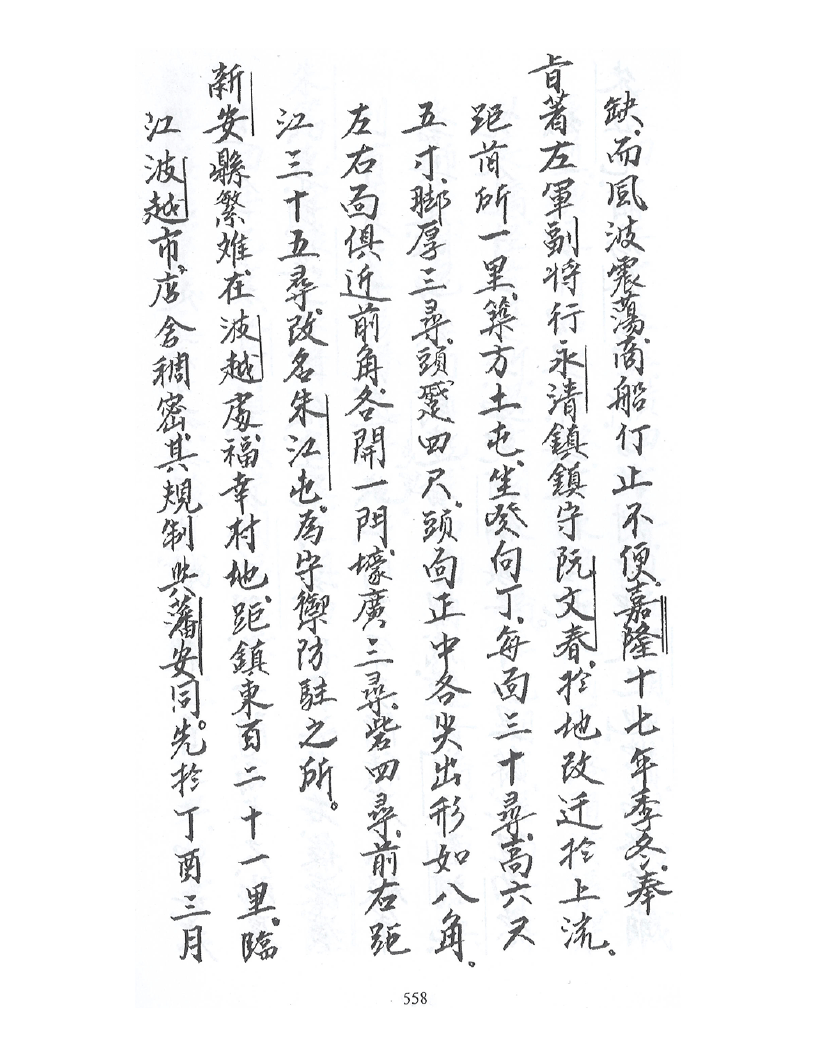 缺、而風波震蕩、商船行止不便。嘉隆十七年季冬、奉
旨著左軍副將行永清鎮鎮守阮文春、於地改迁於上流。
距前所一里、築方土屯、坐癸向丁、每面三十尋、高六尺
五寸、脚厚三尋、頭躉四尺。頭向正中各尖出形如八角。
左右面俱近前角、各開一門、壕廣三尋、砦四尋、前右距
江三十五尋、改名朱江屯。為守禦防駐之所。
新安縣繁难、在波越處福幸村地、距鎮東百二十一里。臨
江波越市。店舍稠密、其規制與藩安同。先於丁酉三月
558